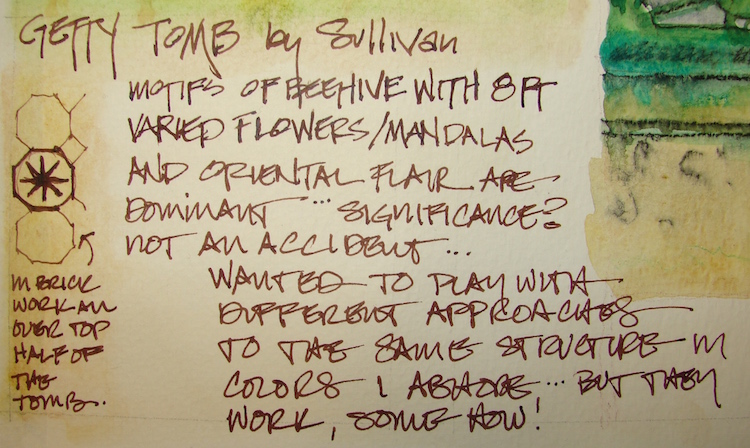 GETTY TOMB by Sullivan
MOTIFS OF BEEHIVE WITH 8 PT
VARIED FLOWERS/MANDALAS
AND ORIENTAL FLAIR ARE
DOMINANT ... SIGNIFICANCE?
NOT AN ACCIDENT ...
WANTED TO PLAY WITH
DIFFERENT APPROACHES
TO THE SAME STRUCTURE IN
COLORS I ABHORE ... BUT THEY
WORK, SOME HOW!
IN BRICK
WORK ALL
OVER TOP
HALF OF
THE
TOMB.